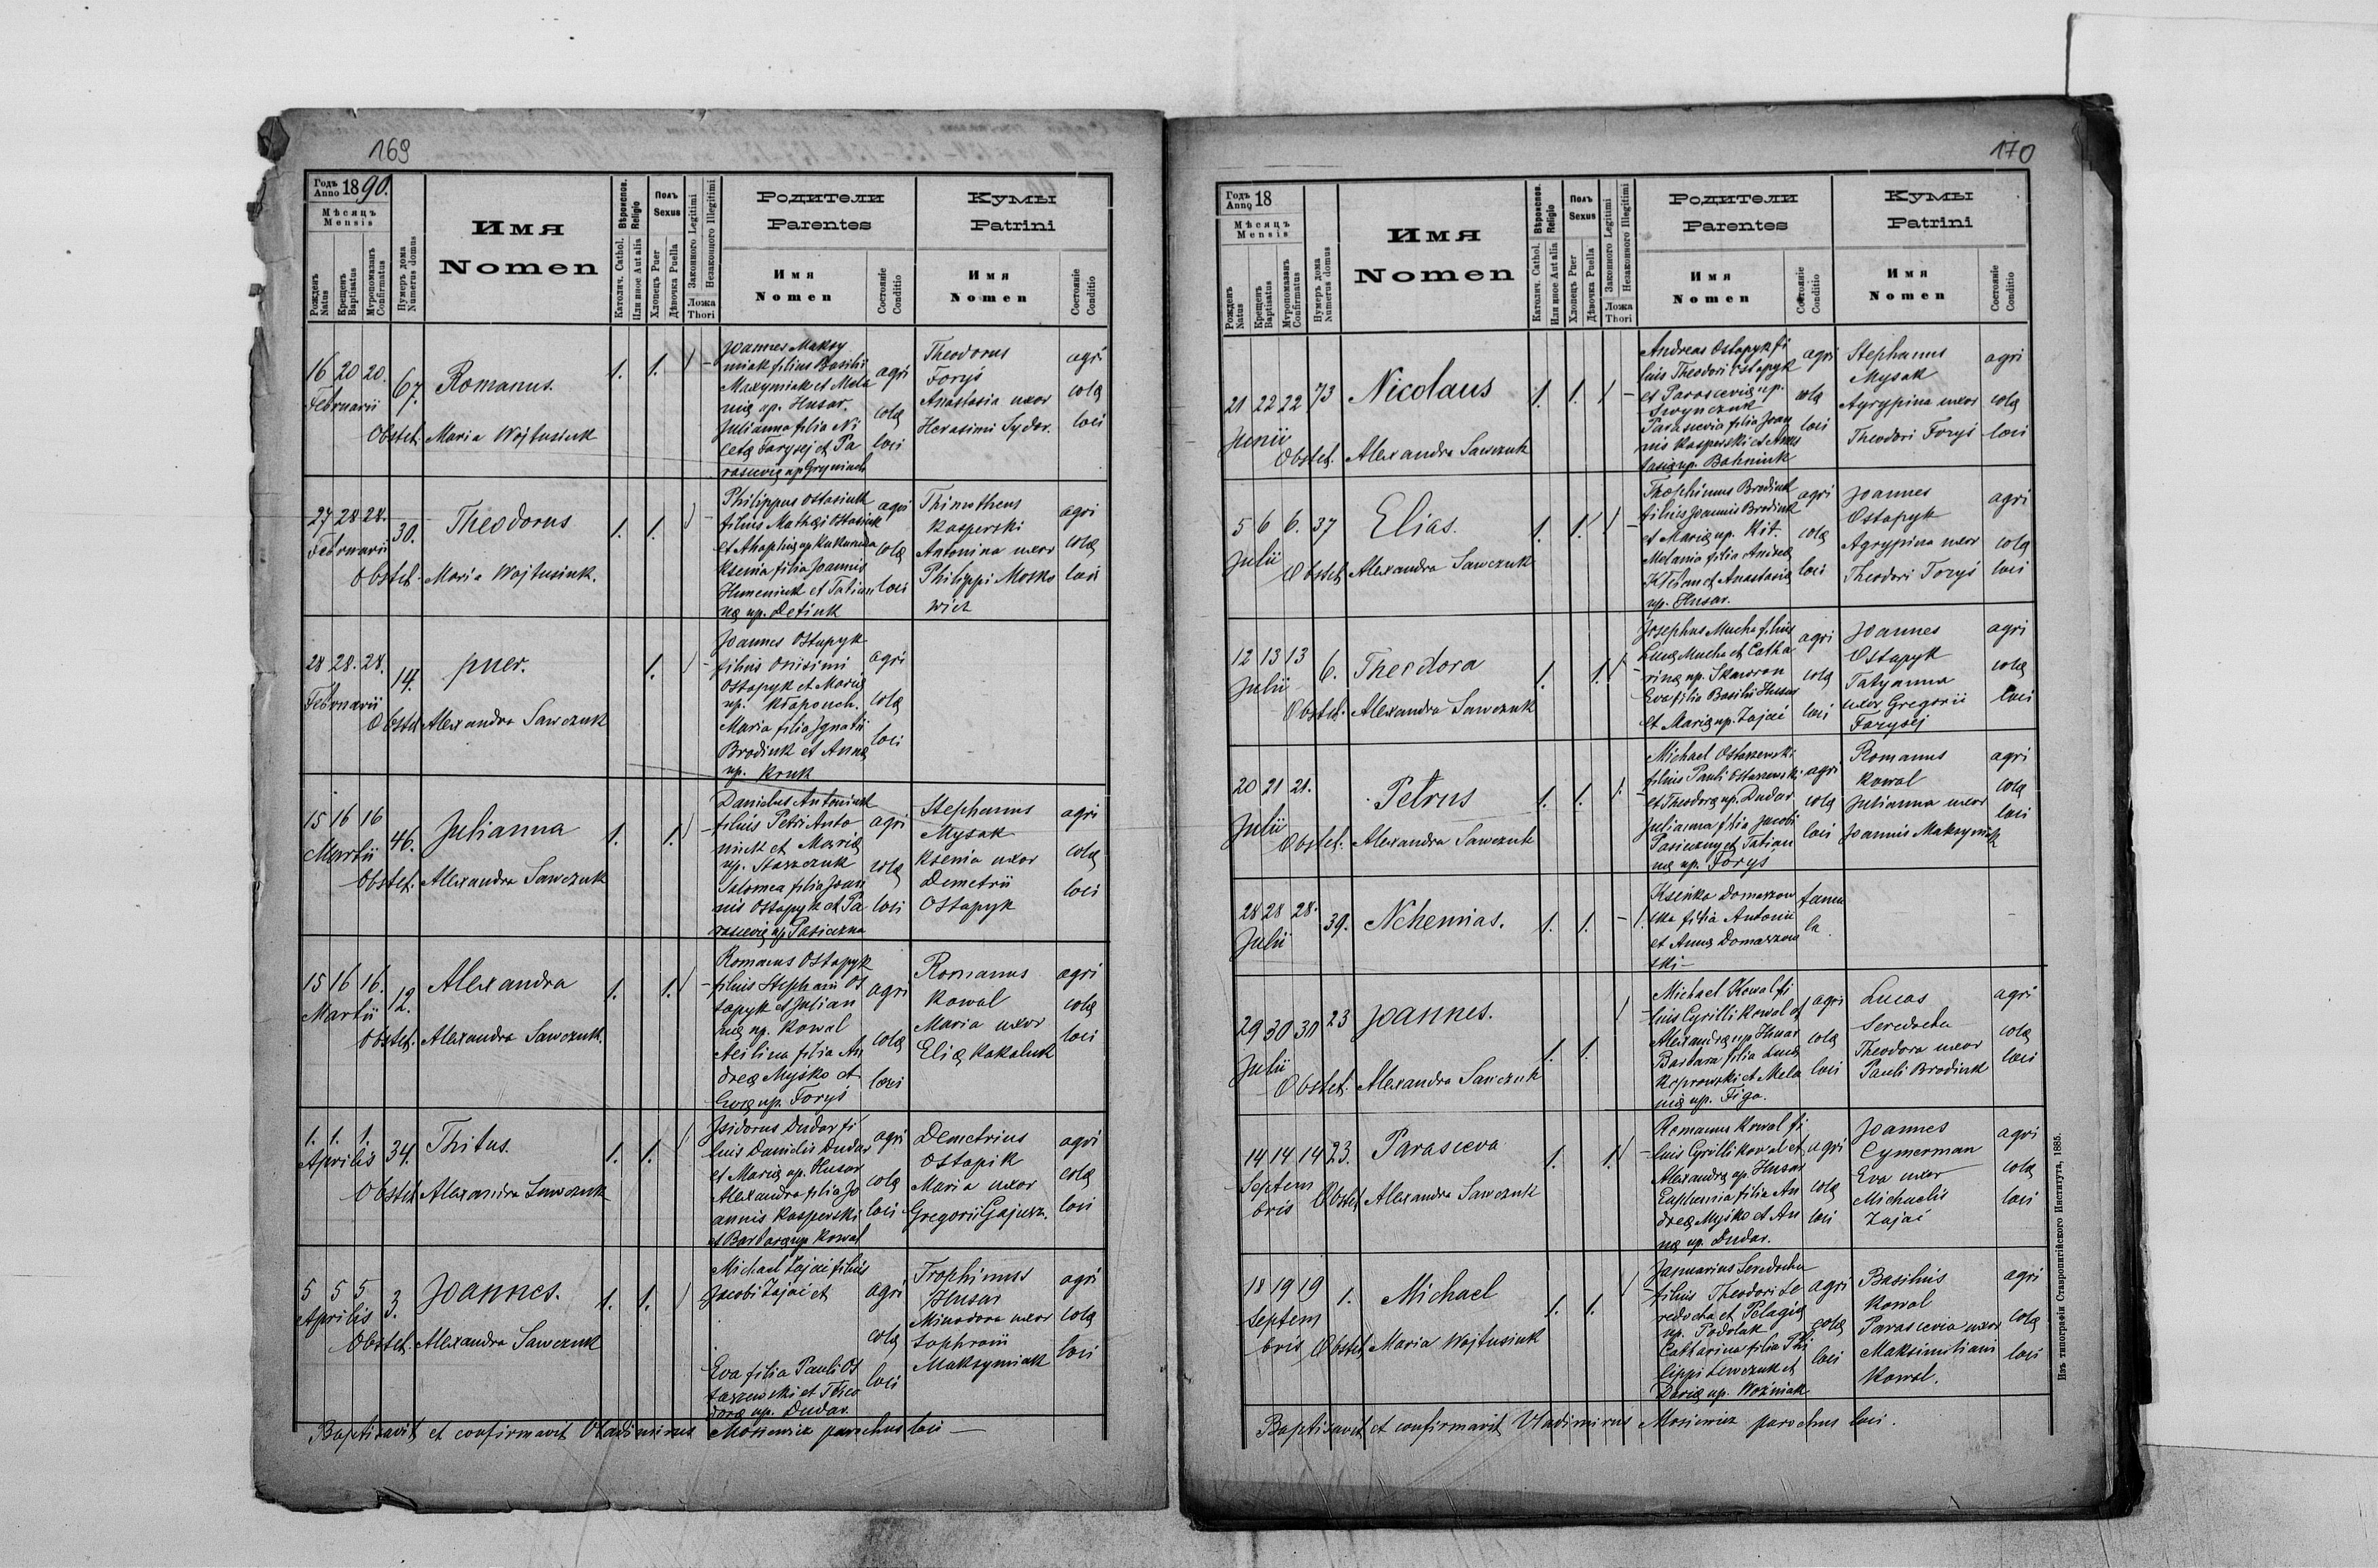 169
Годъ Anno 1890.
Мѣсяцъ
Mensis
Рожденъ Natus
Крещенъ Baptisatus
Мѵропомазанъ Confirmatus
Нумеръ дома Numerus domus
Имя
Nomen
Вѣроиспов. Religio
Католич. Cathol.
Или иное Aut alia
Полъ Sexus
Хлопецъ Puer
Дѣвочка Puella
Законного Legitimi
Незаконного Illegitimi
Ложа Thori
Родители
Parentes
Имя
Nomen
Состояніе Conditio
Кумы
Patrini
Имя
Nomen
Состояніе Conditio
16 20 20.
Februarii
67.
Romanus.
1. 1.
Obstet. Maria Wojtusiuk
Joannes Maksy
miak filius Basilii
Maxymiak et Mela
nię up. Husar.
Julianna filia Ni
cetę Farysej et Pa
rascevię up Gryniuch
agri
colę
loci
Theodorus
Foryś
Anastasia uxor
Herasimi Sydor.
agri
colę
loci
27 28 28.
Februarii
30.
Theodorus
1. 1.
Obstet. Maria Wojtusiuk.
Philippus Ostasiuk
filius Mathęi Ostasiuk
et Ahaphię up Kukurudza
Ksenia filia Joannis
Humeniuk et Tatian
nę up. Detiuk
agri
colę
loci
Thimotheus
Kasperski
Antonina uxor
Philippi Mosko
wicz
agri
colę
loci
28 28. 28.
Februarii
14.
puer.
1.
Obstet Alexandra Sawczuk
Joannes Ostapyk
filius Onisimi
Ostapyk et Marię
up. Kłapouch.
Maria filia Ignatii
Brodiuk et Annę
up. Kruk
agri
colę
loci
15 16 16
Martii
46.
Julianna
1. 1.
Obstet. Alexandra Sawczuk
Danielus Antoniuk
filius Petri Anto
niuk et Marię
up. Staszczuk
Salomea filia Joan
nis Ostapyk et Pa
rascevię up Pasieczna
agri
colę
loci
Stephanus
Mysak
Ksenia uxor
Demetrii
Ostapyk
agri
colę
loci
15 16 16.
Martii
12.
Alexandra
1. 1.
Obstet. Alexandra Sawczuk.
Romanus Ostapyk
filius Stephani Os
tapyk et Julian
nę up. Kowal
Acilina filia An
dreę Myśko et
Evę up. Foryś
agri
colę
loci
Romanus
Kowal
Maria uxor
Elię Kakaluk
agri
colę
loci
1. 1. 1.
Aprilis
34.
Thitus.
1. 1.
Obstet Alexandra Sawczuk
Isidorus Dudar fi
lius Danielis Dudar
et Marię up. Husar
Alexandra filia Jo
annis Kasperski
et Barbarę up Kowal
agri
colę
loci
Demetrius
Ostapik
Maria uxor
Gregorii Gajusz.
agri
colę
loci
5 5 5
Aprilis
3.
Joannes.
1. 1.
Obstet. Alexandra Sawczuk
Michael Zajac filius
Jacobi Zajac et
Eva filia Pauli Os
taszewski et Theo
dorę up. Dudar.
agri
colę
loci
Trophimus
Husar
Minodora uxor
Sophronii
Maksymiak
agri
colę
loci
Baptisavit et confirmavit Vladimirus Mosiewicz parochus loci —
170
Годъ Anno 18
Мѣсяцъ
Mensis
Рожденъ Natus
Крещенъ Baptisatus
Мѵропомазанъ Confirmatus
Нумеръ дома Numerus domus
Имя
Nomen
Вѣроиспов. Religio
Католич. Cathol.
Или иное Aut alia
Полъ Sexus
Хлопецъ Puer
Дѣвочка Puella
Законного Legitimi
Незаконного Illegitimi
Ложа Thori
Родители
Parentes
Имя
Nomen
Состояніе Conditio
Кумы
Patrini
Имя
Nomen
Состояніе Conditio
21 22 22
Junii
73
Nicolaus
1. 1.
Obstet. Alexandra Sawczuk
Andreas Ostapyk fi
lius Theodori Ostapyk
et Parascevię up.
Parascevia filia Joan
nis Kasperski et Anas
tasię up. Bahniuk
agri
colę
loci
Stephanus
Mysak
Agrypina uxor
Theodori Foryś
agri
colę
loci
5 6 6.
Julii
37
Elias.
1. 1.
Obstet Alexandra Sawczuk
Theophimus Brodiuk
filius Joannis Brodiuk
et Marię up. Kit.
Melania filia Andreę
et Anastasię
up. Husar.
agri
colę
loci
Joannes
Ostapyk
Agrypina uxor
Theodori Foryś
agri
colę
loci
12 13 13
Julii
6.
Theodora
1. 1.
Obstet. Alexandra Sawczuk
Josephus Mucha filius
Lucę Mucha et Catha
rinę up. Skawron
Eva filia Basilii Husar
et Marię up. Zajac
agri
colę
loci
Joannes
Ostapyk
Tatyanna
uxor Gregorii
Farysej
agri
colę
loci
20 21 21.
Julii
Petrus
1. 1.
Obstet. Alexandra Sawczuk
Michael Ostaszewski
filius Pauli Ostaszewski
et Theodorę up. Dudar
Julianna filia Jacobi
Pasieczny et Tatian
nę up. Forys
agri
colę
loci
Romanus
Kowal
Julianna uxor
Joannis Maksymiak
agri
colę
loci
28 28 28.
Julii
39.
Nehemias.
1. 1. – 1.
Ksenka Domaszow
ska filia Antonii
et Annę Domaszow
ski –
famu
la.
29 30 30
Julii
23
Joannes.
1. 1.
Obstet. Alexandra Sawczuk
Michael Kowal fi
lius Cyrilli Kowal et
Alexandrę up Husar
Barbara filia Lucę
Koprowski et Mela
nię up. Figa.
agri
colę
loci
Lucas
Seredocha
Theodora uxor
Pauli Brodiuk
agri
colę
loci
14 14 14
Septem
bris
23.
Parasceva
1. 1.
Obstet Alexandra Sawczuk
Romanus Kowal fi
lius Cyrilli Kowal et
Alexandrę up. Husar
Euphemia filia An
dreę Myśko et An
nę up. Dudar.
agri
colę
loci
Joannes
Cymerman
Eva uxor
Michaelis
Zajac
agri
colę
loci
18 19 19
Septem
bris
1.
Michael
1. 1.
Obstet Maria Wojtusiuk
Januarius Seredocha
filius Theodori Se
redocha et Pelagię
up. Podolak
Catharina filia Phi
lippi Lewczuk et
Darię up. Woźniak
agri
colę
loci
Basilius
Kowal
Parascevia uxor
Maksimiliani
Kowal.
agri
colę
loci
Baptisavit et confirmavit Vladimirus Mosiewicz parochus loci.
Изъ типографіи Ставропигійского Института, 1885.